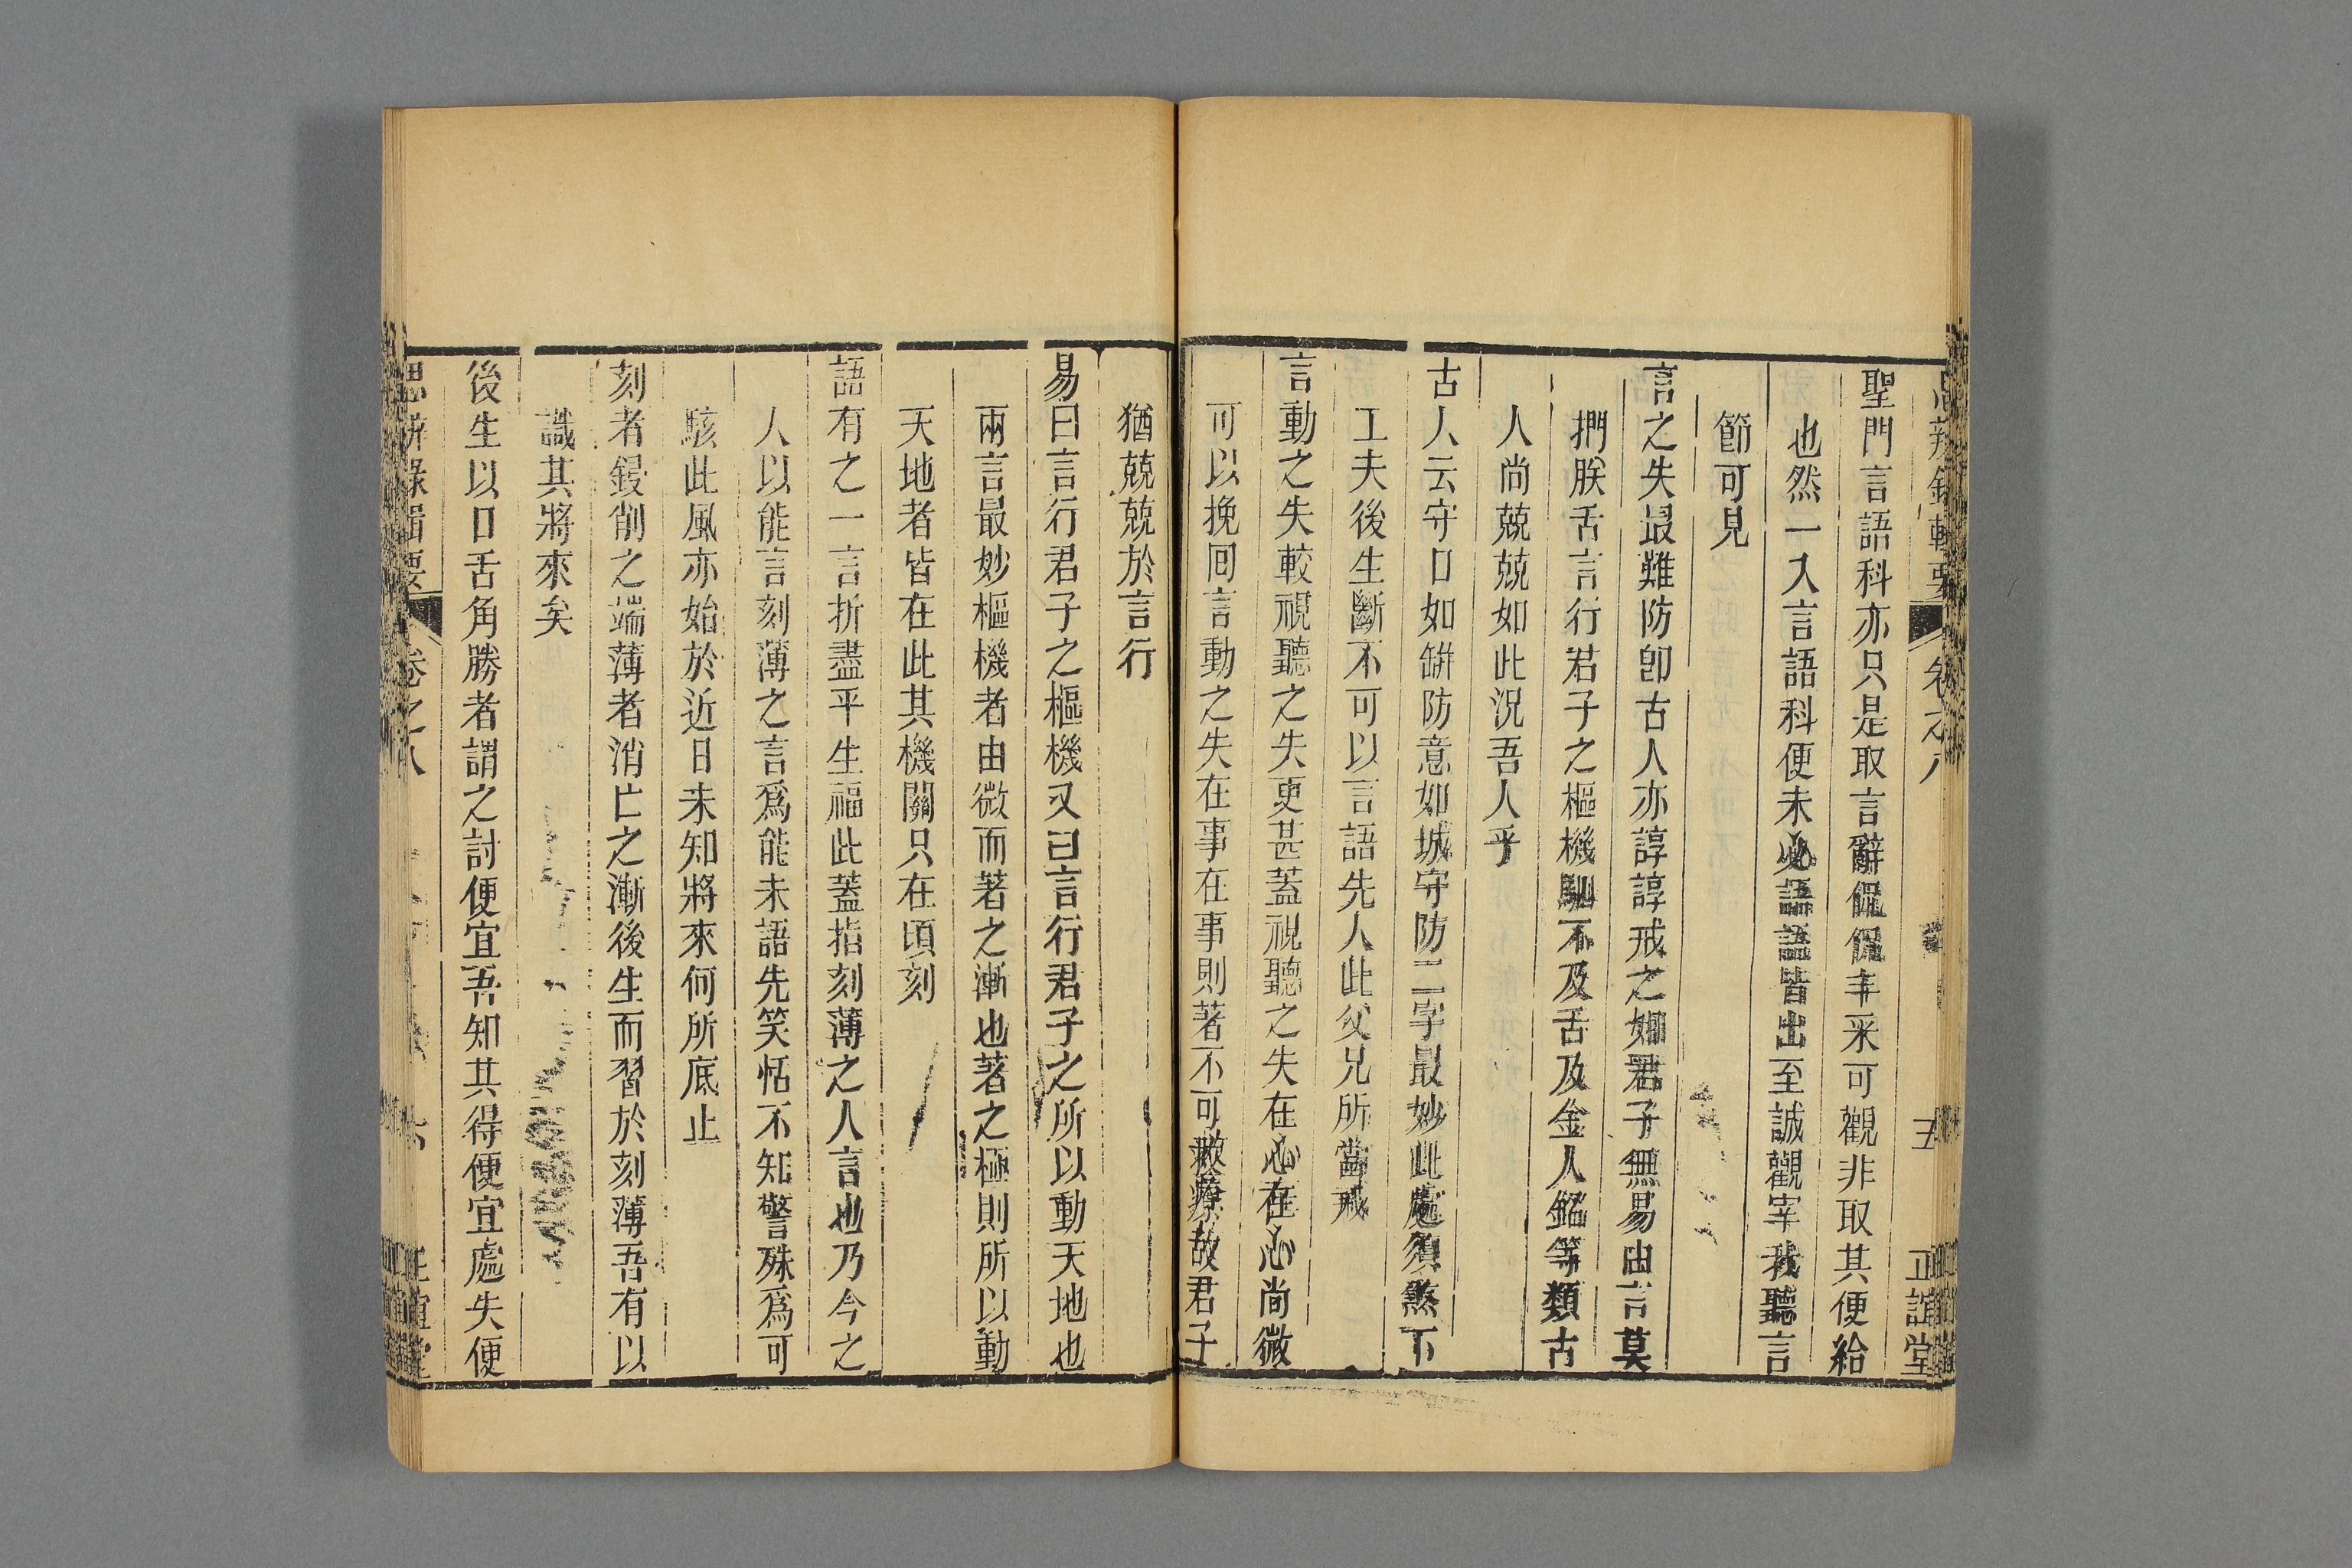 思辨錄輯要 卷之八 五 正誼堂
聖門言語科亦只是取言辭侃侃丰采可觀非取其便給
也然一入言語科便未必語語皆出至誠觀宰我聽言
節可見
言之失最難防卽古人亦諄諄戒之如君子無易由言莫
捫朕舌言行君子之樞機駟不及舌及金人銘等類古
人尚兢兢如此況吾人乎
古人云守口如缾防意如城守防二字最妙此處須煞下
工夫後生斷不可以言語先人此父兄所當戒
言動之失較視聽之失更甚蓋視聽之失在心在心尚微
可以挽囘言動之失在事在事則著不可救療故君子
猶兢兢於言行
易曰言行君子之樞機又曰言行君子之所以動天地也
兩言最妙樞機者由微而著之漸也著之極則所以動
天地者皆在此其機關只在頃刻
語有之一言折盡平生福此蓋指刻薄之人言也乃今之
人以能言刻薄之言爲能未語先笑恬不知警殊爲可
駭此風亦始於近日未知將來何所底止
刻者鋟削之端薄者消亡之漸後生而習於刻薄吾有以
識其將來矣
後生以口舌角勝者謂之討便宜吾知其得便宜處失便
思辨錄輯要 卷之八 六 正誼堂